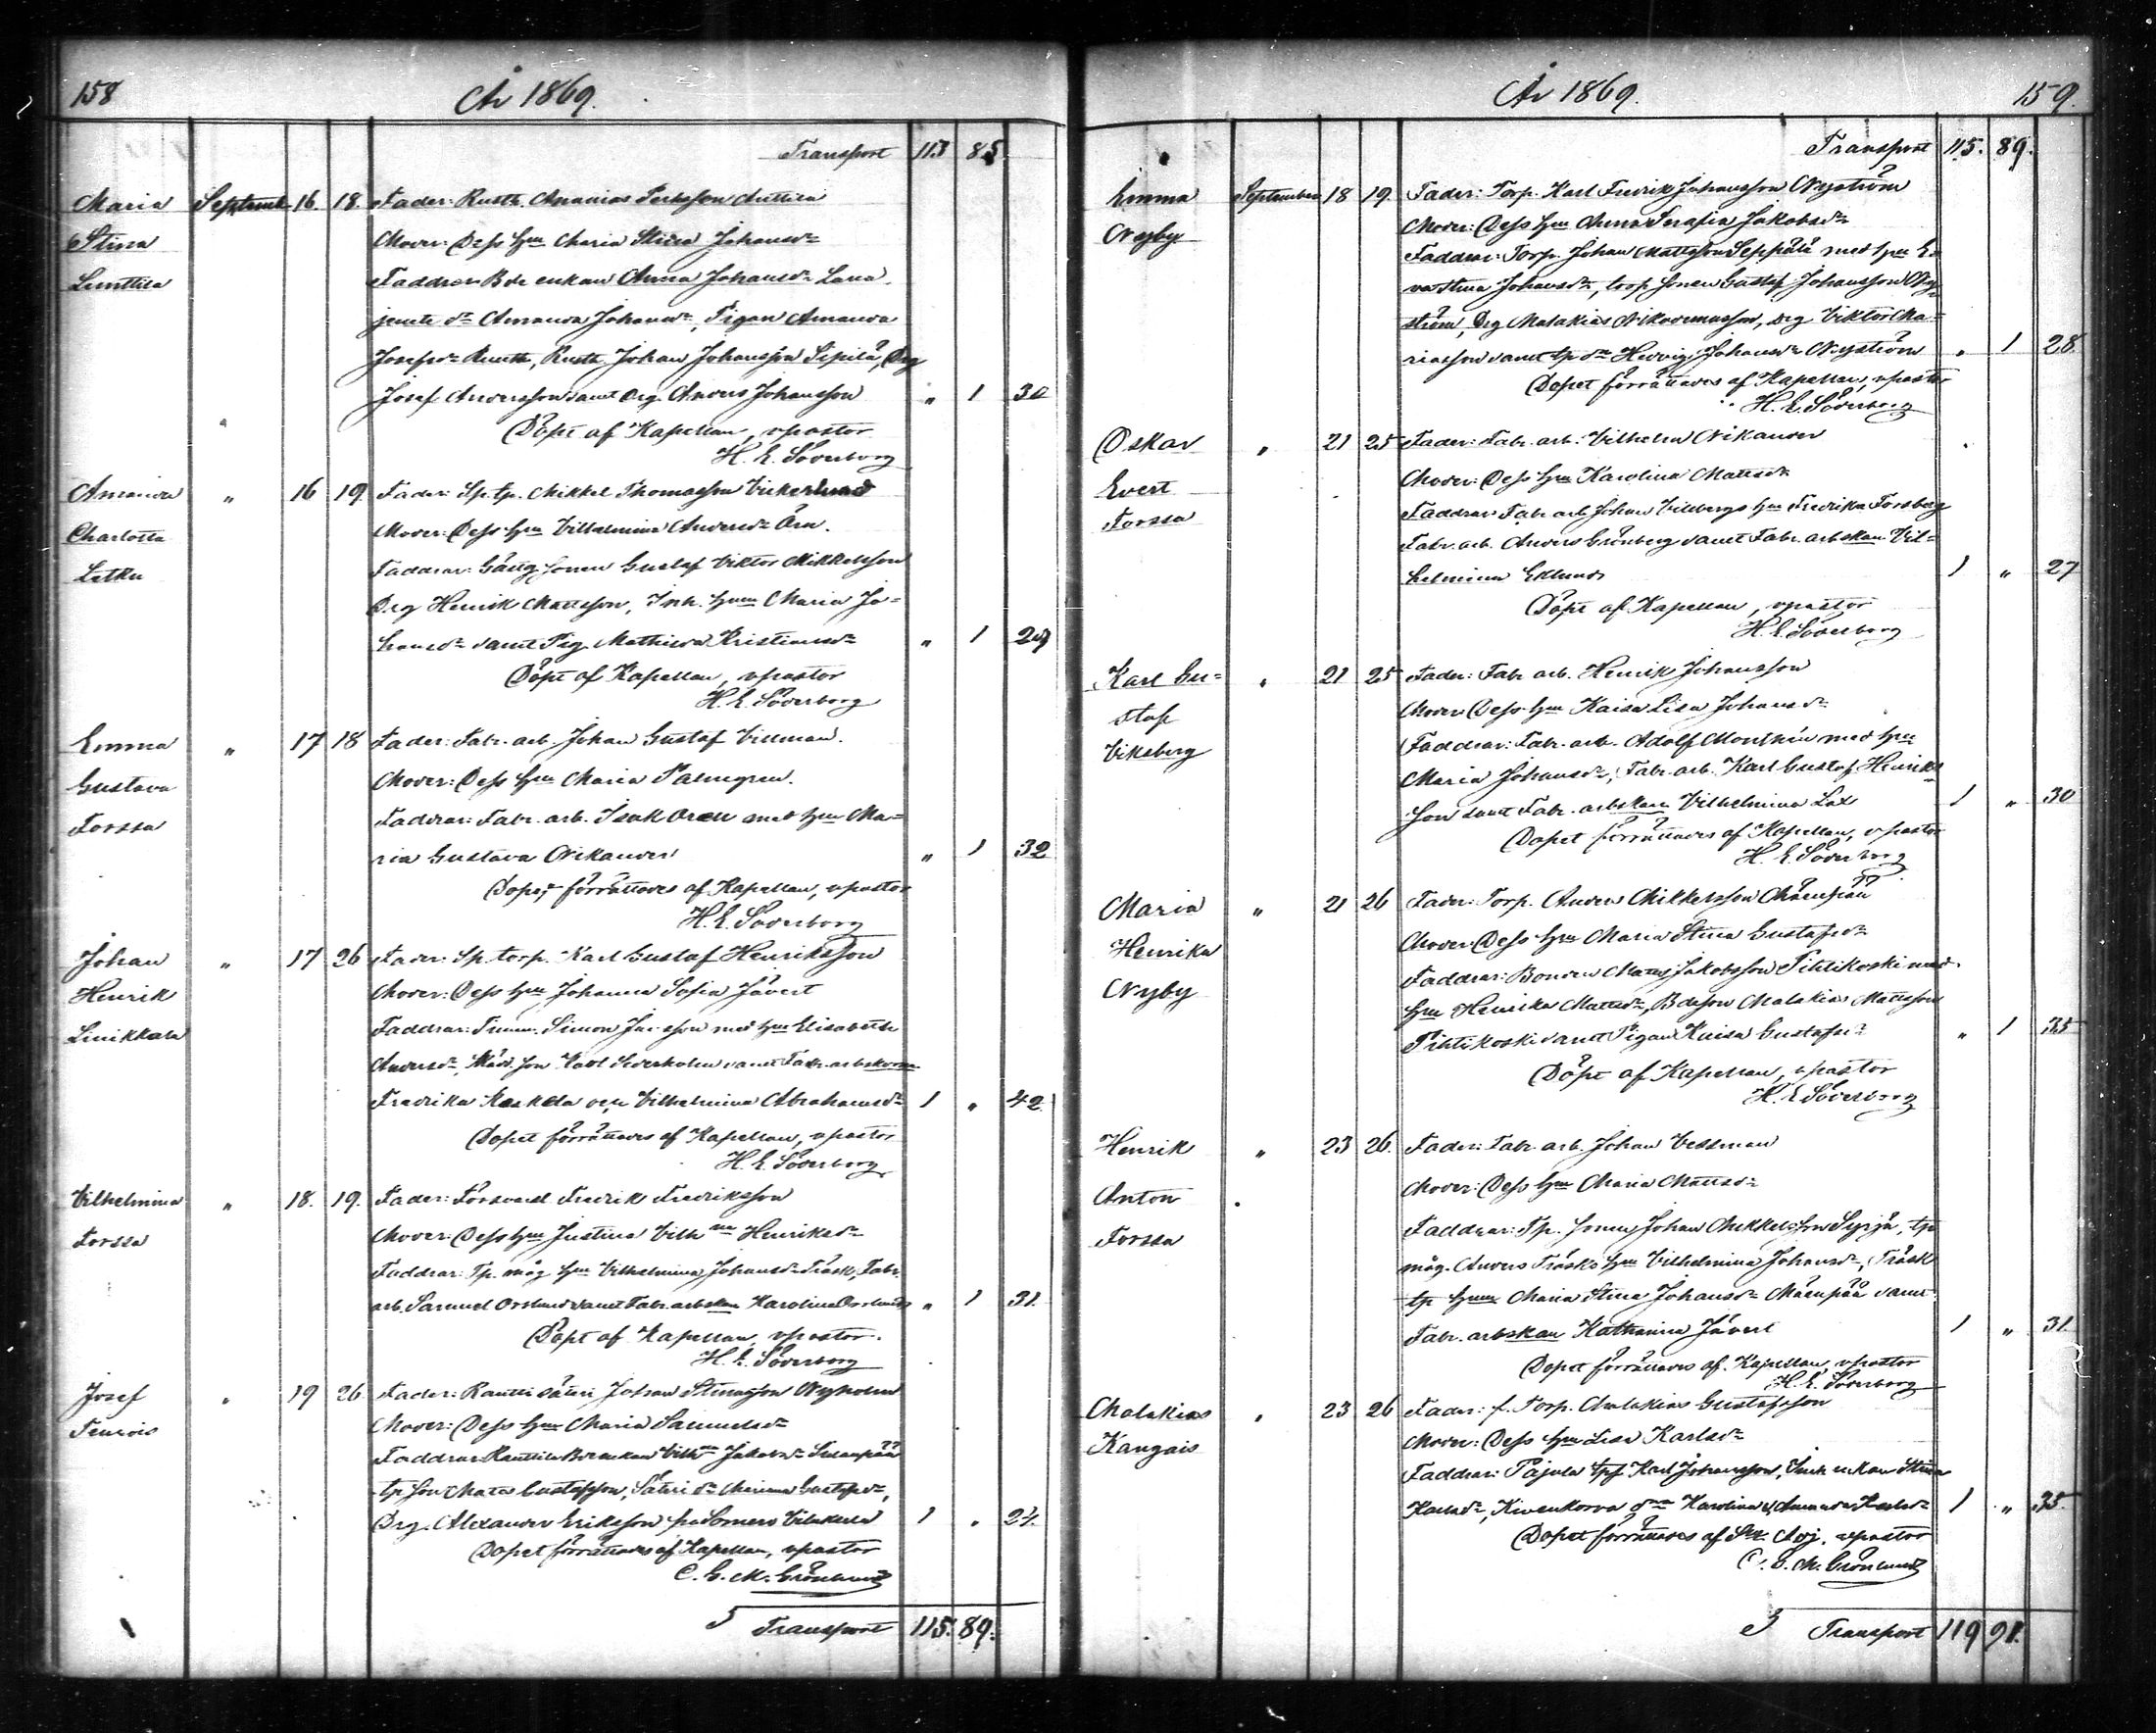 158
År 1869.
Transport 113 85
Maria Septemb. 16. 18. Fader: Rusth. Ananias Persson Anttila
Stina Moder: Dess hu Maria Stina Johansdr
Linttila Faddrar: Bde enkan Anna Johansdr
jemte dr Amanda Johansdr, Pigan Amanda
Josefsdr Rusth. Johan Johansson Sipilä, Drg
Josef Andersson samt Drg. Anders Johansson „ 1 30
Döpt af Kapellan, vpastor
H. E. Söderborg
Amanda „ 16 19. Fader: Sp. tp. Mikkel Thomasson
Charlotta Moder: Dess hu Vilhelmina Andersdr Örn.
Letku Faddrar: Gustaf Viktor Mikkelsson
Drg Henrik Mattsson, Inh. hun Maria Jo=
hansdr samt Pig. Mathilda Kristiansdr „ 1 29
Döpt af Kapellan, vpastor
H. E. Söderborg
Emma „ 17 18 Fader: Fabr. arb. Johan Gustaf Villman.
Gustava Moder: Dess hu Maria Palmgren.
Forssa Faddrar: Fabr. arb. Isak Oren med hu Ma=
ria Gustava Nikander „ 1 32
Dopet förrättades af Kapellan, vpastor
H. E. Söderborg
Johan „ 17 26 Fader: Sp. torp. Karl Gustaf Henriksson
Henrik Moder: Dess hu Johanna Sofia Jävert
Linikkala Faddrar: Timm. Simon med hu Elisabeth
Andersdr, son Karl Sederholm samt Fabr. arbskorna
Fredrika Kaskela och Vilhelmina Abrahamsdr 1 „ 42.
Dopet förrättades af Kapellan, vpastor
H. E. Söderborg
Vilhelmina „ 18. 19. Fader: Fredrik Fredriksson
Forssa Moder: Dess hu Justina Vilhna Henriksdr
Faddrar: Tp. måg hu Vilhelmina Johansdr Träsk, Fabr.
arb. Samuel Orslund samt Fabr. arbskan Karolina Orslund „ 1 31.
Döpt af Kapellan, vpastor.
H. E. Söderborg
Josef „ 19 26 Fader: Johan Nyholm
Moder: Dess hu Maria Samuelsdr
Faddrar: Vilhna Jakobsdr
tp son Mats Gustafsson, Säteri dr Gustafsdr,
Drg. Alexander Eriksson 1 „ 24.
Dopet förrättades af Kapellan, vpastor
C. G. M. Grönlund
Transport 115. 89.
År 1869.
159.
Transport 115. 89.
Emma September 18 19. Fader: Torp. Karl Fredrik Johansson Nyström
Nyby Moder: Dess hu Anna Serafia Jakobsdr
Faddrar: Torp. Johan Mattsson Seppälä med hu E=
va Stina Johansdr, torp. sonen Gustaf Johansson Ny=
ström, Drg Malakias Nikodemusson, Drg Viktor Ma=
riasson samt tp dr Hedvig Johansdr Nyström „ 1 28.
Dopet förrättades af Kapellan, vpastor
H. E. Söderborg
Oskar „ 21 25 Fader: Fabr. arb. Vilhelm Nikander
Evert Moder: Dess hu Karolina Mattsdr
Forssa Faddrar: Fabr. arb. Johan Villbergs hu Fredrika Forsberg
Fabr. arb. Anders Grönberg samt Fabr. arbskan Vil=
helmina Eklund 1 „ 27
Döpt af Kapellan, vpastor
H. E. Söderborg
Karl Gu= „ 21 25 Fader: Fabr. arb. Henrik Johansson
staf Moder: Dess hu Kaisa Lisa Johansdr
Viksberg Faddrar: Fabr. arb. Adolf med hu
Maria Johansdr, Fabr. arb. Karl Gustaf Henriks
son samt Fabr. arbskan Vilhelmina Lax 1 „ 30
Dopet förrättades af Kapellan, vpastor
H. E. Söderborg
Maria „ 21 26 Fader: Torp. Anders Mikkelsson Mäenpää
Henrika Moder: Dess hu Maria Stina Gustafsdr
Nyby Faddrar: Bonden Matts Jakobsson Pihtikoski med
hu Henrika Mattsdr, Bdeson Malakias Mattsson
Pihtikoski samt Pigan Kaisa Gustafsdr „ 1 35
Döpt af Kapellan, vpastor
H. E. Söderborg
Henrik „ 23 26. Fader: Fabr. arb. Johan Vessman
Anton Moder: Dess hu Maria Mattsdr
Forssa Faddrar: Tp. sonen Johan Mikkelsson Syrjä, tp
måg. Anders Träsks hu Vilhelmina Johansdr, Träsk
tp hun Maria Stina Johansdr Mäenpää samt
Fabr. arbskan Katharina Jävert 1 „ 31.
Dopet förrättades af Kapellan, vpastor
H. E. Söderborg
Malakias „ 23 26 Fader: f. Torp. Malakias Gustafsson
Kangais Moder: Dess hu Lisa Karlsdr
Faddrar: Pajula Karl Johansson, Inh. enkan Stina
Karlsdr, Kivenkorva Karolina & Amanda Karlsdr 1 „ 35.
Dopet förrättades af Adj. vpastor
C. G. M. Grönlund
Transport 119 91.